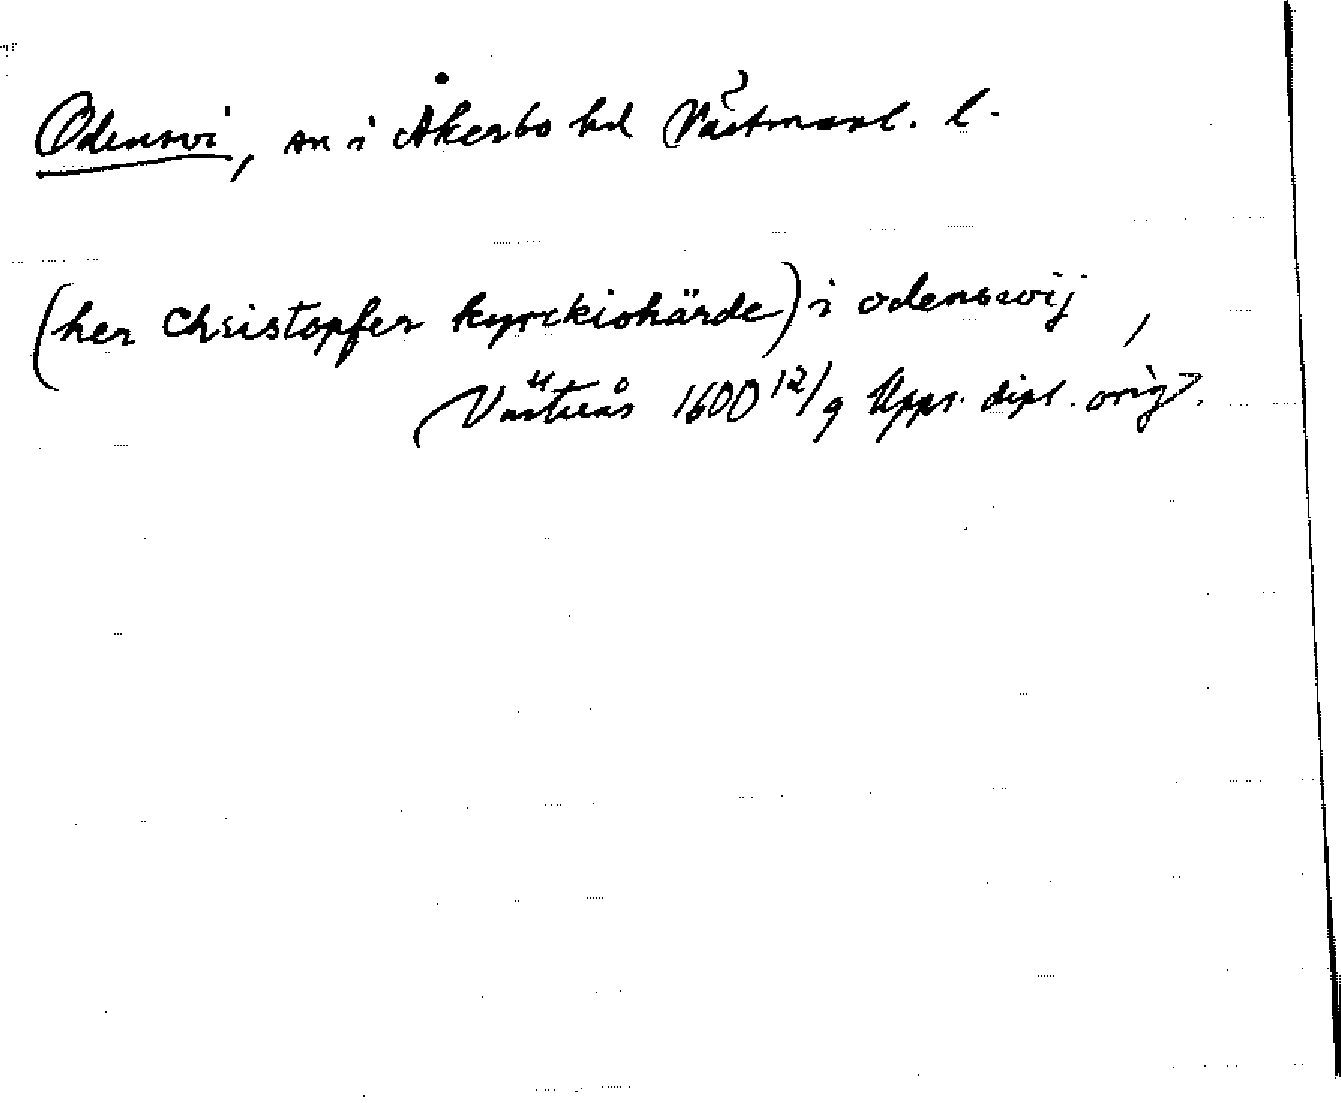 Odensvi, sn i Åkerbo hd Västmanl. l.
(her Christopfer kyrckiohärde) i odenswij,
Västerås 1600 12/9 Upps. dipl. orig.